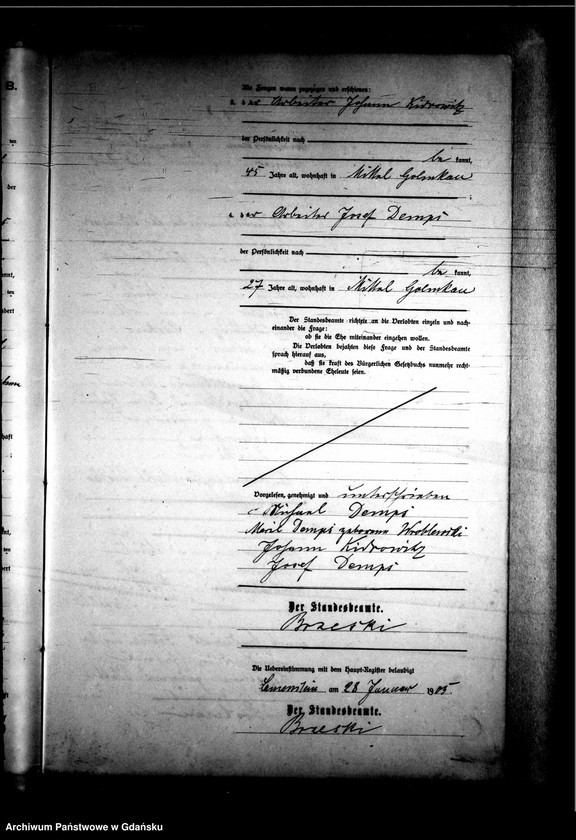 B.
Als Zeugen waren zugezogen und erschienen:
der Arbeiter Johann Kidrowitz
der Persönlichkeit nach
be kannt,
45 Jahre alt, wohnhaft in Mittel Golmkau
;
4. der Arbeiter Josef Demps
der Persönlichkeit nach
be kannt,
27 Jahre alt, wohnhaft in Mittel Golmkau
Der Standesbeamte richtete an die Verlobten einzeln und nach-
einander die Frage:
ob sie die Ehe miteinander eingehen wollen.
Die Verlobten bejahten diese Frage und der Standesbeamte
sprach hierauf aus,
daß sie kraft des Bürgerlichen Gesetzbuchs nunmehr recht-
mäßig verbundene Eheleute seien.
Vorgelesen, genehmigt und unterschrieben
Michael Demps
Marie Demps geborene Wroblewski
Johann Kidrowitz
Josef Demps
Der Standesbeamte.
Brzeski
Die Uebereinstimmung mit dem Haupt-Register beglaubigt
am 28 Januar 1905.
Der Standesbeamte.
Brzeski
Archiwum Państwowe w Gdańsku